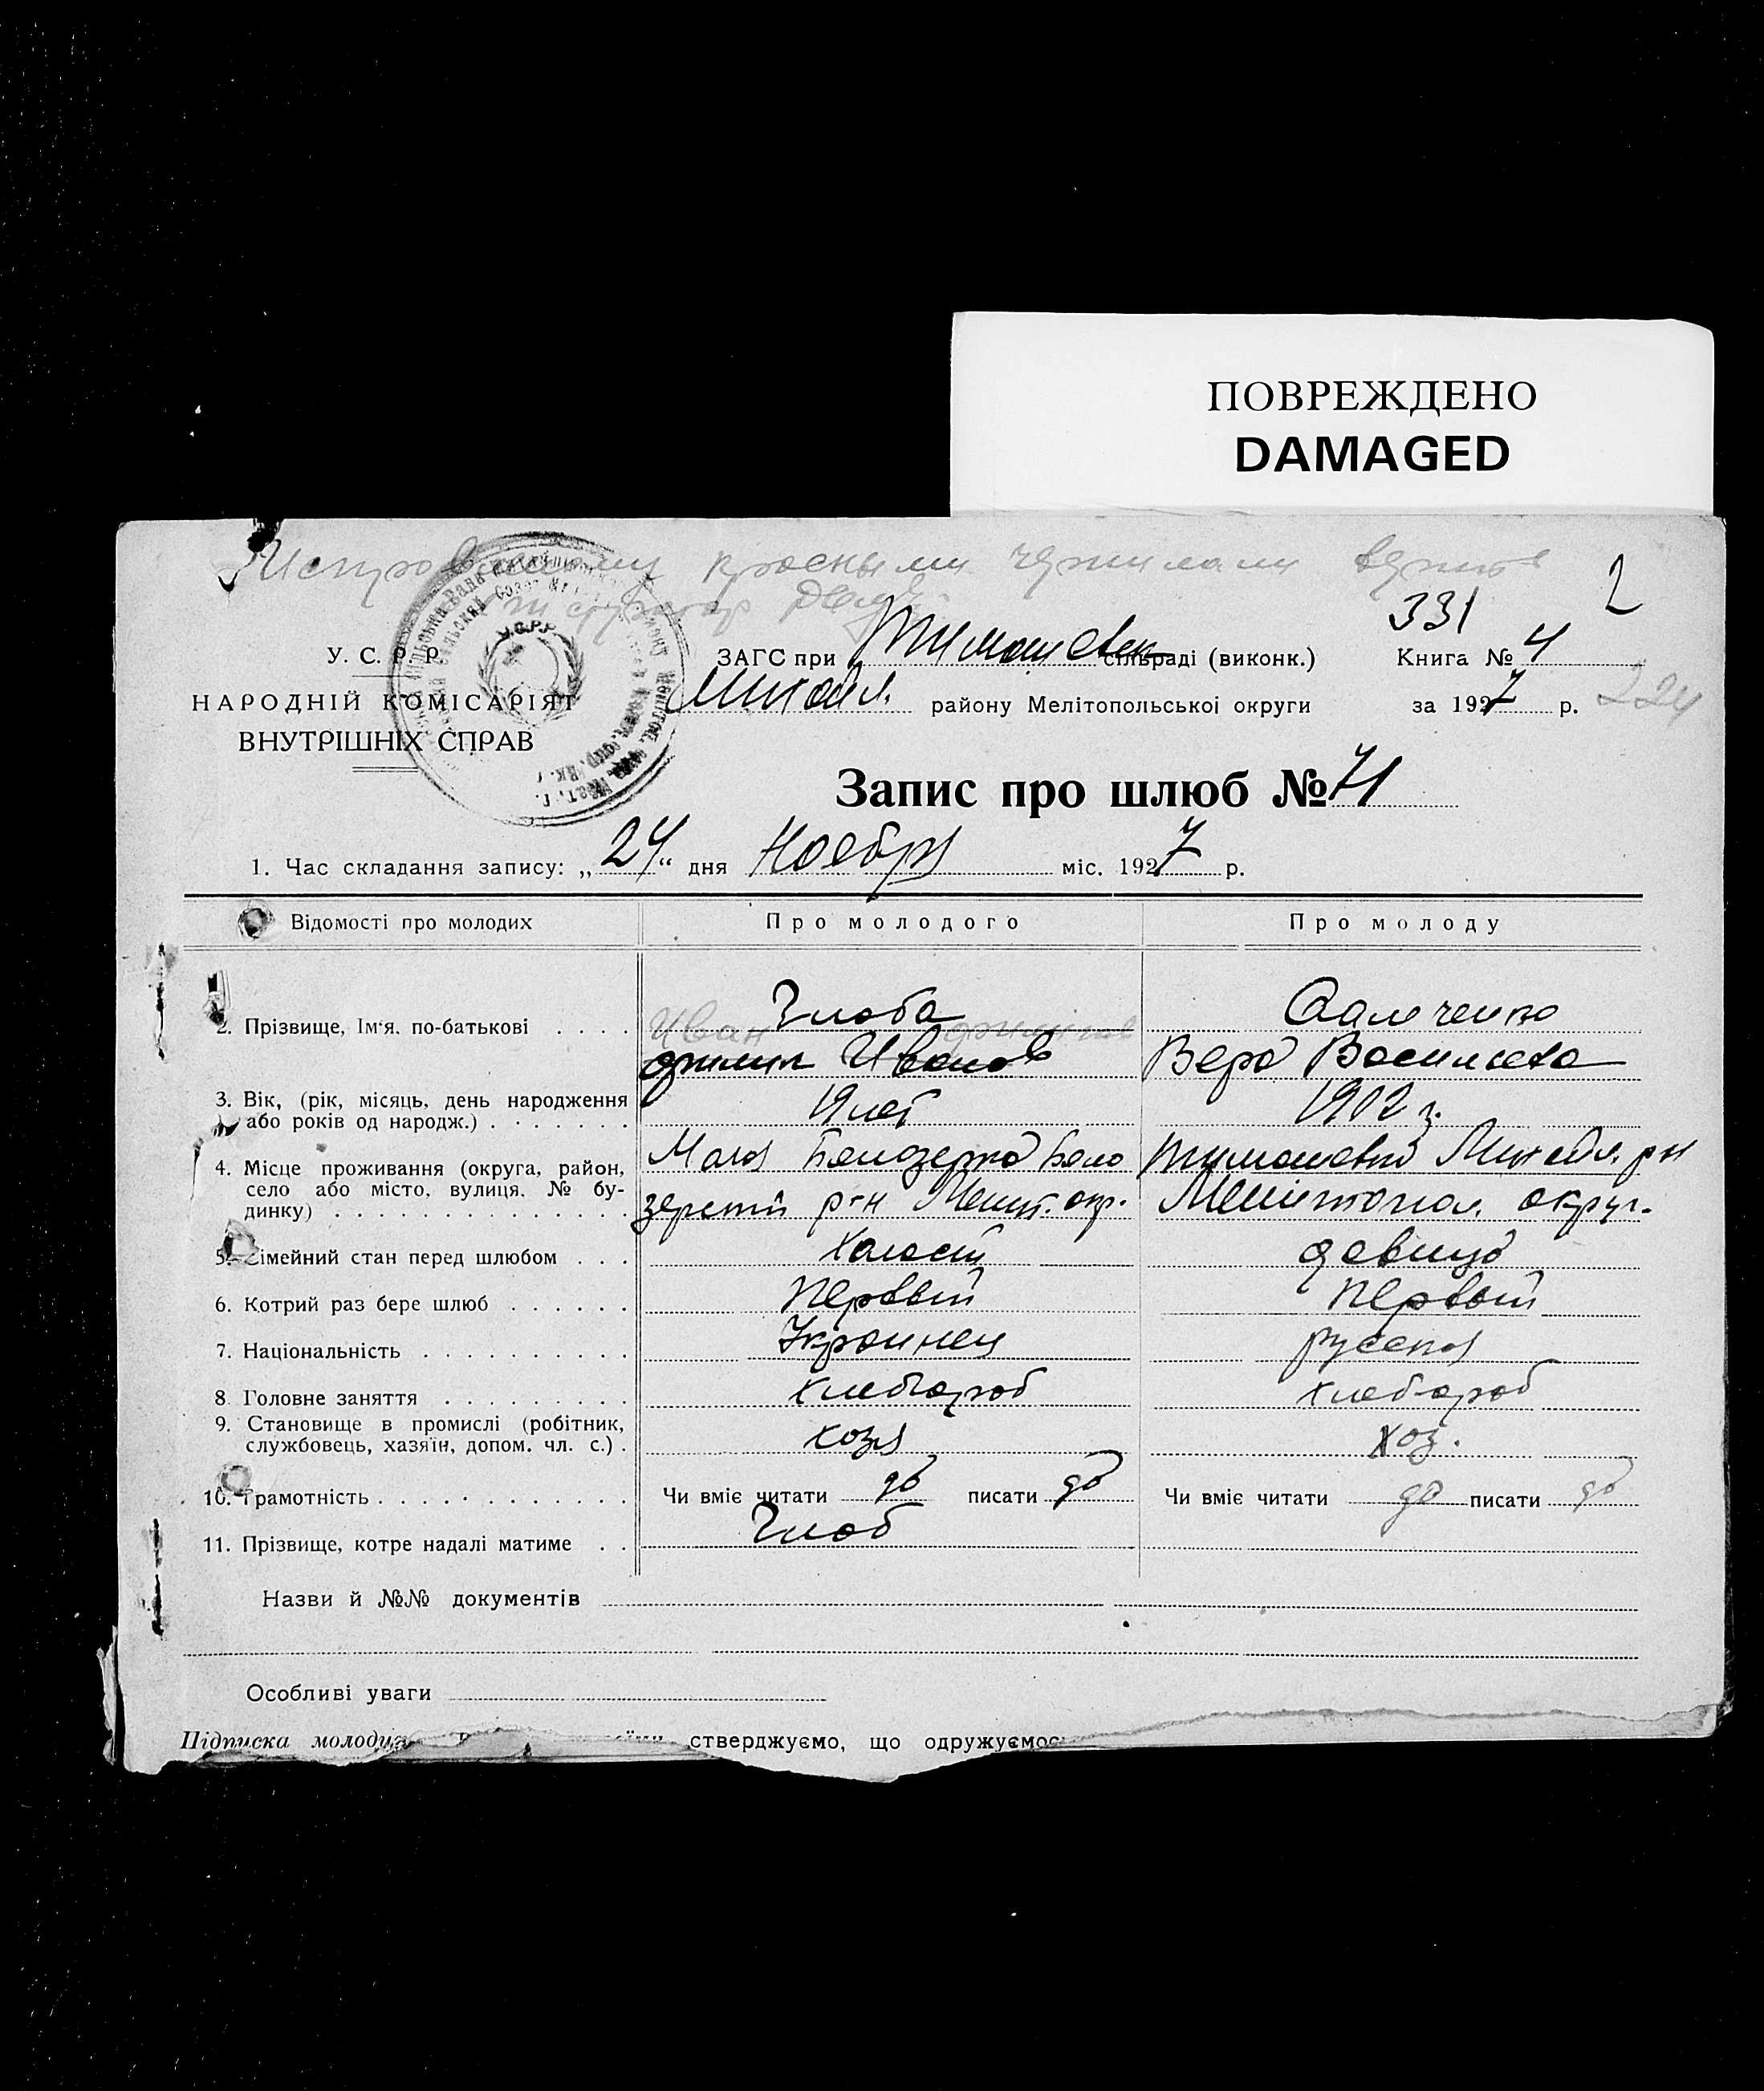 ПОВРЕЖДЕНО
DAMAGED
красными чернилами
2
331
У. С. Р. Р.
ЗАГС при Тимошевск сільраді (виконк.) Книга № 4
НАРОДНІЙ КОМІСАРІЯТ
ВНУТРІШНІХ СПРАВ
Михайл. району Мелітопольської округи за 1927 р. 224
Запис про шлюб № 71
1. Час складання запису: „24“ дня Ноебря міс. 1927 р.
Відомості про молодих Про молодого Про молоду
2. Прізвище, Ім'я, по-батькові . . . . Злоба
Иван
Иванов Вера Васильевна
3. Вік, (рік, місяць, день народження
або років од народж.) . . . . . . . 19 лет 1902 г.
4. Місце проживання (округа, район,
село або місто, вулиця, № бу-
динку) . . . . . . . . . . . . . .
Мала Белозерка Бело Тимошевка Михайл. рн
зерский р-н Мелит. окр. Мелітопол. округ.
5. Сімейний стан перед шлюбом . . . Холост девица
6. Котрий раз бере шлюб . . . . . . Первый Первый
7. Національність . . . . . . . . . . Украинец русская
8 Головне заняття . . . . . . . . . хлебороб хлебороб
9. Становище в промислі (робітник,
службовець, хазяїн, допом. чл. с.) . хозя хоз.
10. Грамотність . . . . . . . . . . . . Чи вміє читати да писати да Чи вміє читати да писати да
11. Прізвище, котре надалі матиме . . Злоб
Назви й №№ документів
Особливі уваги
Підписка молодих стверджуємо, що одружуємос